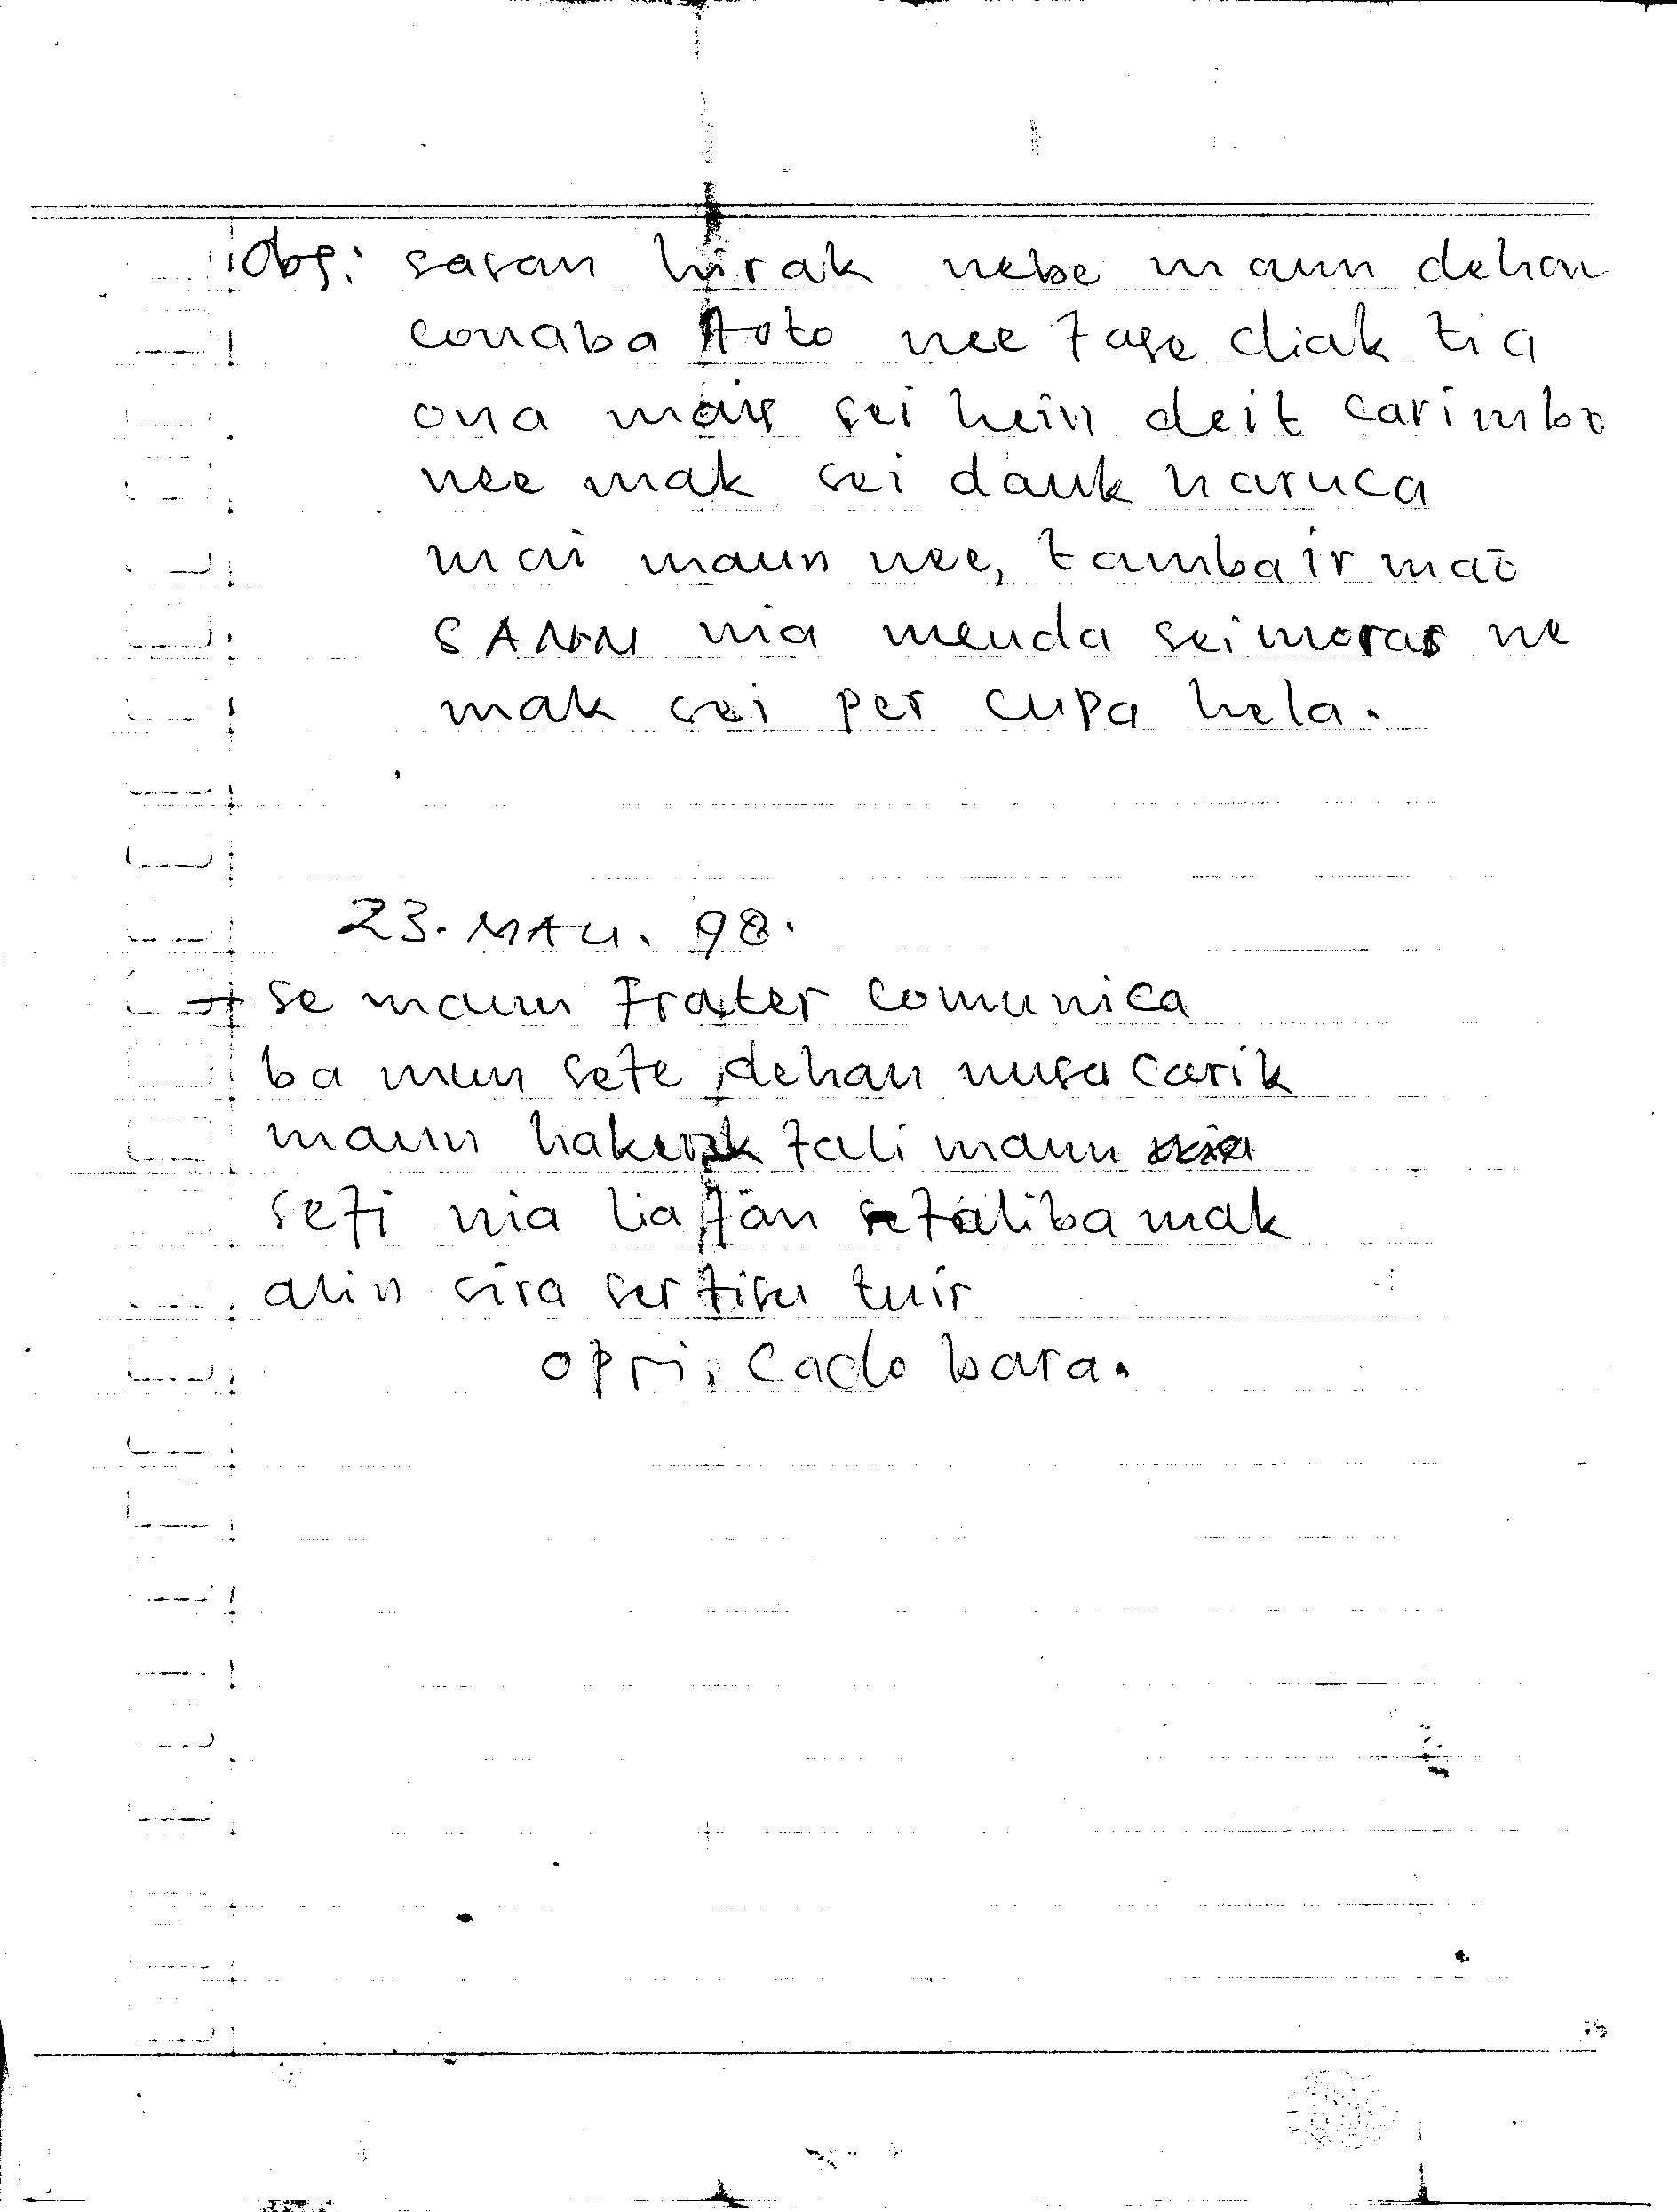 Obs: sasan hirak nebe maun dehan
conaba Foto nee fase diak tia
ona mais sei hein deit carimbo
nee mak sei dauk haruca
mai maun nee, tamba irmaõ
SANNU nia menda sei moras ne
mak sei per cupa hela.
23. MAU. 98.
se maun Frater comunica
ba mun sefe dehan nusa carik
maun hakerek fali maun
sefi nia liafan se fali ba mak
alin sira sertisu tuir
opri, Cado bara.